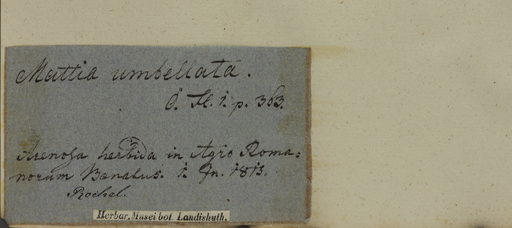 Mattia umbellata.
Ö. Fl. 1. p. 363.
Arenosa herbida in Agro Roma=
norum Banatus. 1. Jn. 1815.
Rochel.
Herbar. Musei bot. Landishuth.